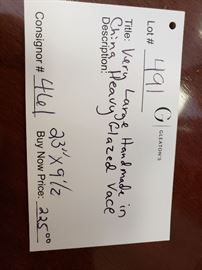 Lot # 491
G | GLEATON'S
Title: Very Large Handmade in
China Heavy Glazed Vace
Description:
23" X 9 1/2
Consignor # 461 Buy Now Price: 225.00